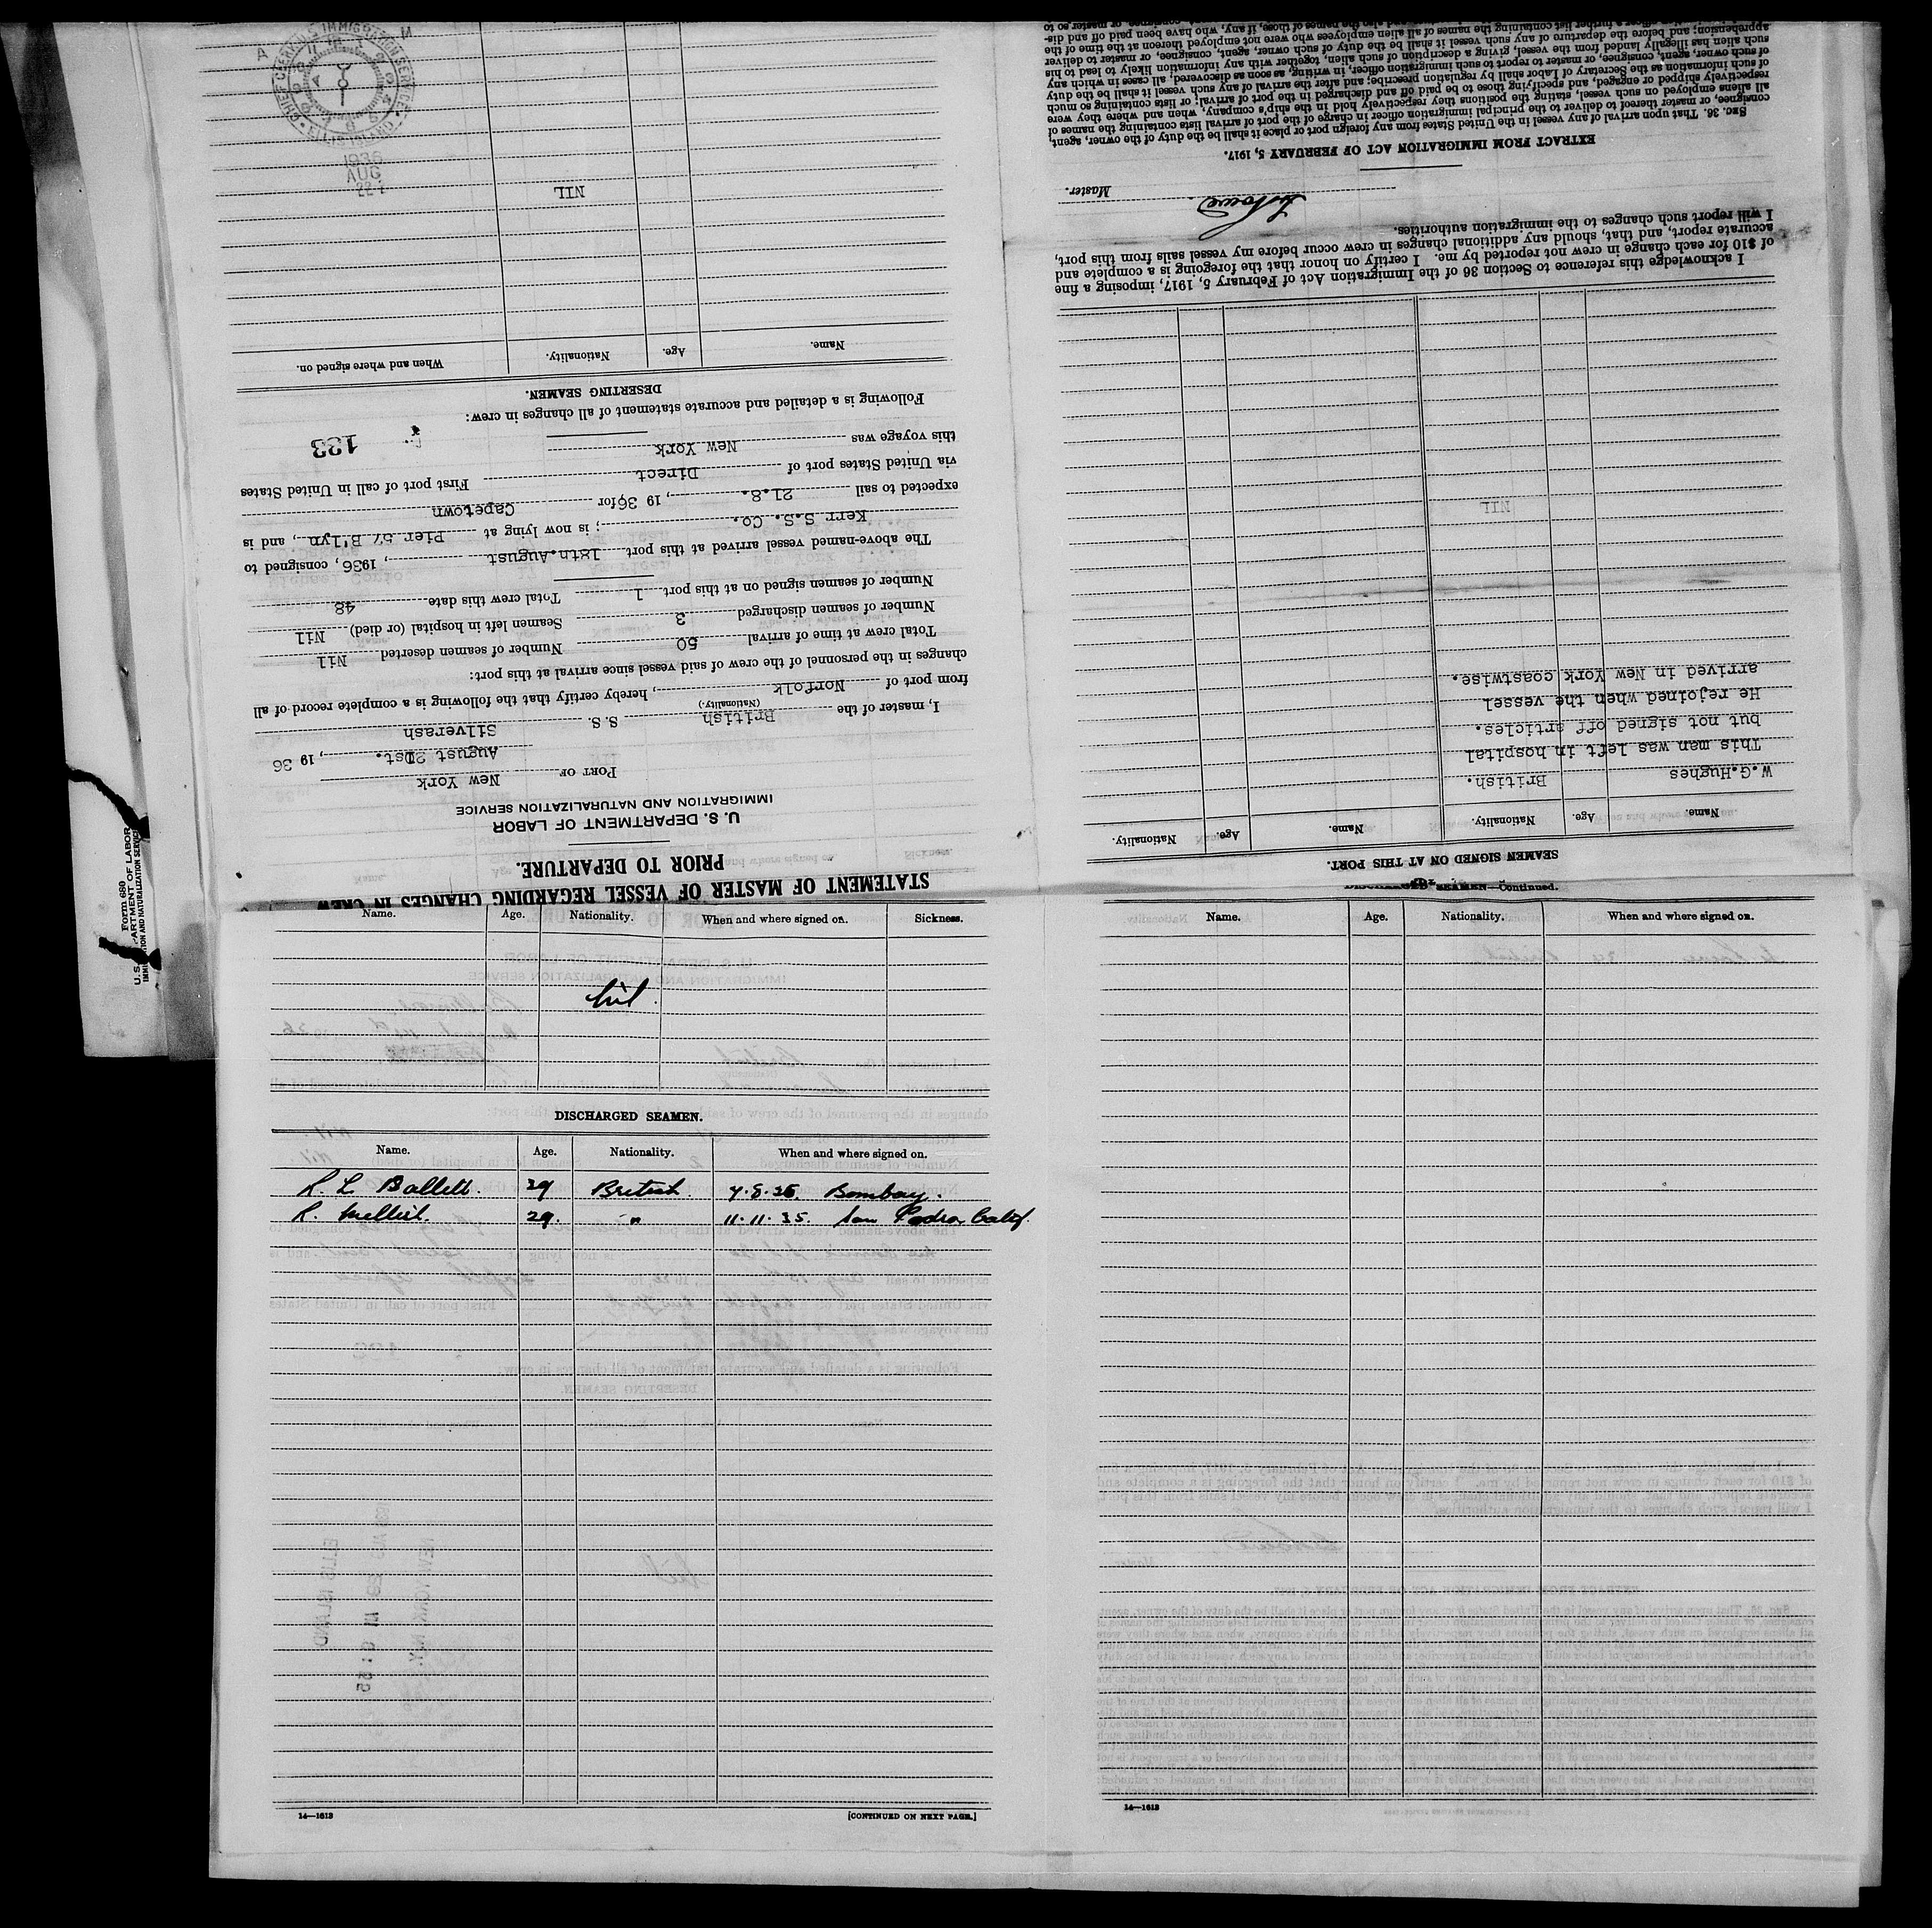 STATEMENT OF MASTER OF VESSEL REGARDING CHANGES IN CREW
PRIOR TO DEPARTURE.
U. S. DEPARTMENT OF LABOR
IMMIGRATION AND NATURALIZATION SERVICE
PORT OF New York
August 21st., 19 36
I, master of the British S.S. Silverash
(Nationality.)
from port of Norfolk, hereby certify that the following is a complete record of all
changes in the personnel of the crew of said vessel since arrival at this port:
Total crew at time of arrival 50 Number of seamen deserted Nil
Number of seamen discharged 3 Seamen left in hospital (or died) Nil
Number of seamen signed on at this port 1 Total crew this date 48
The above-named vessel arrived at this port 18th.August, 1936, consigned to
Kerr S.S. Co.; is now lying at Pier 57 B'lyn, and is
expected to sail 21.8., 19 36 for Capetown
via United States port of Direct First port of call in United States
this voyage was New York
133
Following is a detailed and accurate statement of all changes in crew:
DESERTING SEAMEN.
Name. Age. Nationality. When and where signed on.
NIL
22
AUG
1936
CHIEF CLERK U.S. IMMIGRATION SERVICE
ELLIS ISLAND
A M
SEAMEN SIGNED ON AT THIS PORT.
Name. Age. Nationality. Name. Age. Nationality.
W.G.Hughes British.
This man was left in hospital
but not signed off articles.
He rejoined when the vessel
arrived in New York coastwise.
NIL
I acknowledge this reference to Section 36 of the Immigration Act of February 5, 1917, imposing a fine
of $10 for each change in crew not reported by me. I certify on honor that the foregoing is a complete and
accurate report, and that, should any additional changes in crew occur before my vessel sails from this port,
I will report such changes to the immigration authorities.
Master.
EXTRACT FROM IMMIGRATION ACT OF FEBRUARY 5, 1917.
SEC. 36. That upon arrival of any vessel in the United States from any foreign port or place it shall be the duty of the owner, agent,
consignee, or master thereof to deliver to the principal immigration officer in charge of the port of arrival lists containing the names of
all aliens employed on such vessel, stating the positions they respectively hold in the ship's company, when and where they were
respectively shipped or engaged, and specifying those to be paid off and discharged in the port of arrival; or lists containing so much
of such information as the Secretary of Labor shall by regulation prescribe; and after the arrival of any such vessel it shall be the duty
of such owner, agent, consignee, or master to report to such immigration officer, in writing, as soon as discovered, all cases in which any
such alien has illegally landed from the vessel, giving a description of such alien, together with any information likely to lead to his
apprehension; and before the departure of any such vessel it shall be the duty of such owner, agent, consignee, or master to deliver
to such immigration officer a further list containing the names of all alien employees who were not employed thereon at the time of the
Form 680
U. S. DEPARTMENT OF LABOR
IMMIGRATION AND NATURALIZATION SERVICE
Name. Age. Nationality. When and where signed on. Sickness.
Nil
DISCHARGED SEAMEN.
Name. Age. Nationality. When and where signed on.
R. L. Ballett. 29 British Bombay.
29. " 11.11.35. San Pedro, Calif.
14—1613 [CONTINUED ON NEXT PAGE.]
SEAMEN—Continued.
Name. Age. Nationality. When and where signed on.
14—1613